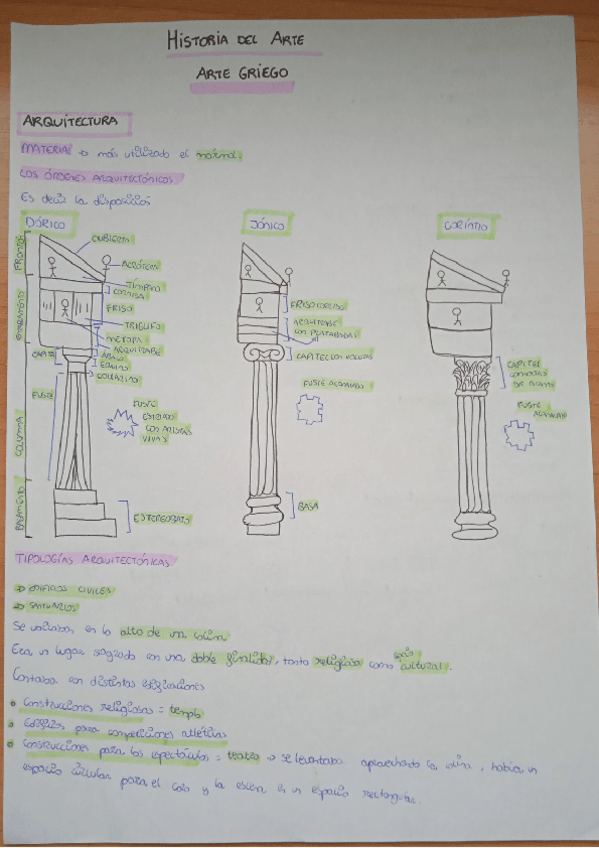 HISTORIA DEL ARTE
ARTE GRIEGO
ARQUITECTURA
MATERIAL → más utilizado el mármol.
LOS ÓRDENES ARQUITECTÓNICOS
Es decir la disposición
DÓRICO
FRONTÓN
CUBIERTA
ACRÓTERA
TÍMPANO
CORNISA
ENTABLAMENTO
FRISO
TRIGLIFO
METOPA
ARQUITRABE
CAPITEL
ÁBACO
EQUINO
COLLARINO
COLUMNA
FUSTE
FUSTE
ESTRIADO
CON ARISTAS
VIVAS
BASAMENTO
ESTEREOBATO
JÓNICO
FRISO CORRIDO
ARQUITRABE
CON PLATABANDAS
CAPITEL CON VOLUTAS
FUSTE ACANALADO
BASA
CORINTIO
CAPITEL
CON HOJAS
DE ACANTO
FUSTE
ACANALADO
TIPOLOGÍAS ARQUITECTÓNICAS
→ EDIFICIOS CIVILES
→ SANTUARIOS
Se ubicaban en lo alto de una colina
Era un lugar sagrado con una doble finalidad, tanto religiosa como cultural.
Contaba con distintas edificaciones
• Construcciones religiosas = templo
• Edificios para competiciones atléticas
• Construcciones para los espectáculos = teatro → se levantaba aprovechando la colina, había un
espacio circular para el coro y la escena es un espacio rectangular.